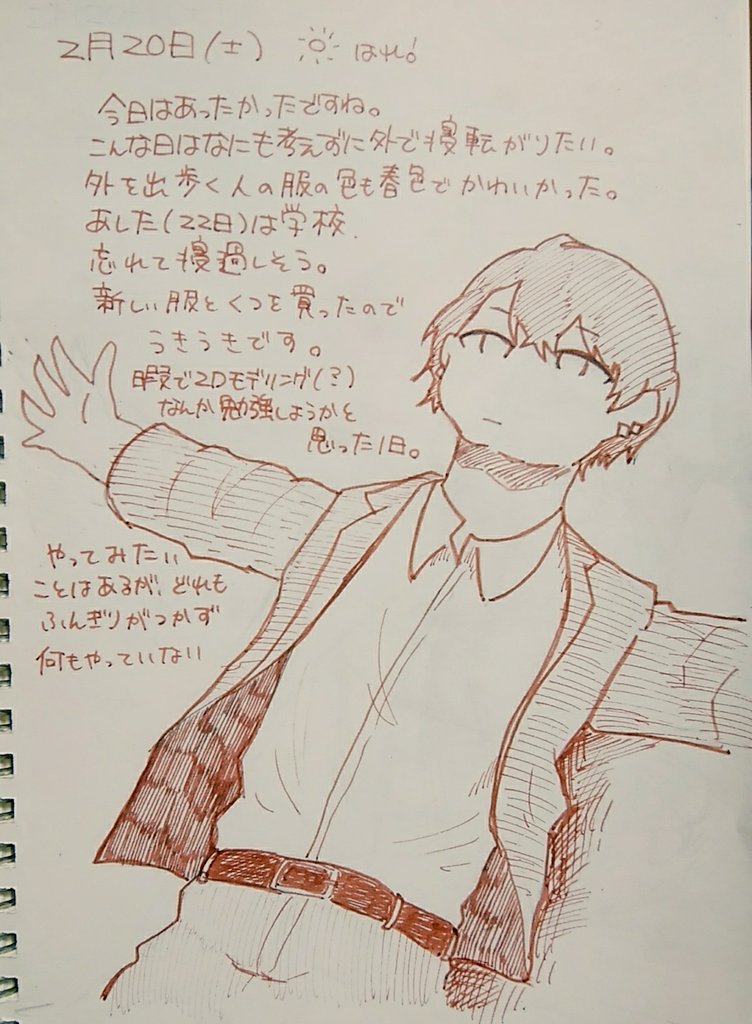 2月20日(土) はれ!
今日はあったかかったですね。
こんな日はなにも考えずに外で寝転がりたい。
外を出歩く人の服の色も春色でかわいかった。
あした(22日)は学校
忘れて寝過しそう。
新しい服とくつを買ったので
うきうきです。
暇で2Dモデリング(?)
なんか勉強しようかと
思った1日。
やってみたい
ことはあるが、どれも
ふんぎりがつかず
何もやっていない